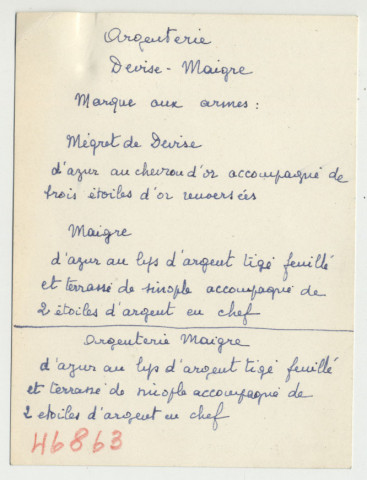 Argenterie
Devise - Maigre
Marque aux armes :
Mégret de Devise
d'azur au chevron d'or accompagné de
trois étoiles d'or renversées
Maigre
d'azur au lys d'argent tigé feuillé
et terrassé de sinople accompagné de
2 étoiles d'argent en chef
Argenterie Maigre
d'azur au lys d'argent tigé feuillé
et terrassé de sinople accompagné de
2 etoiles d'argent en chef
46863